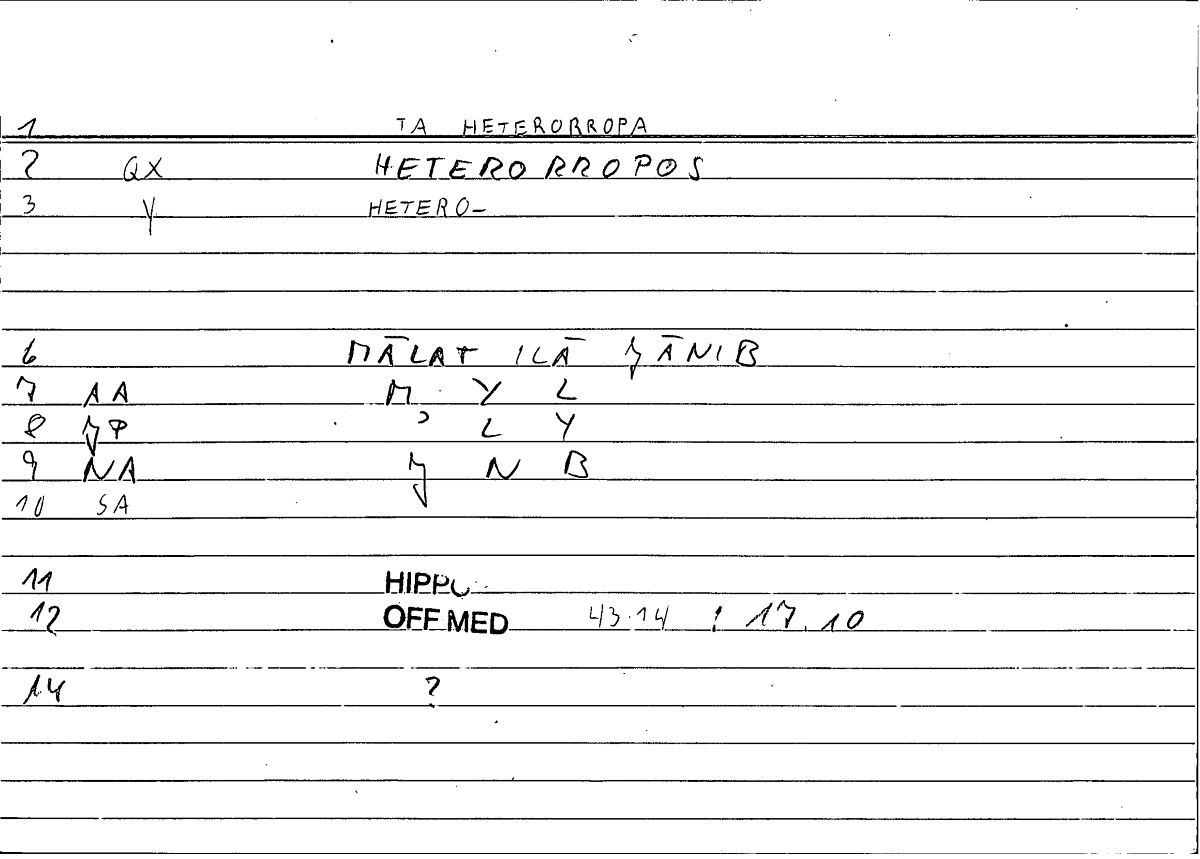 1 TA HETERORROPA
2 QX HETERORROPOS
3 Y HETERO-
6 MĀLAT ILĀ ǦĀNIB
7 AA M Y L
8 ǦP ʾ L Y
9 NA Ǧ N B
10 SA
11 HIPPO
12 OFF MED 43.14 ; 17.10
14 ?